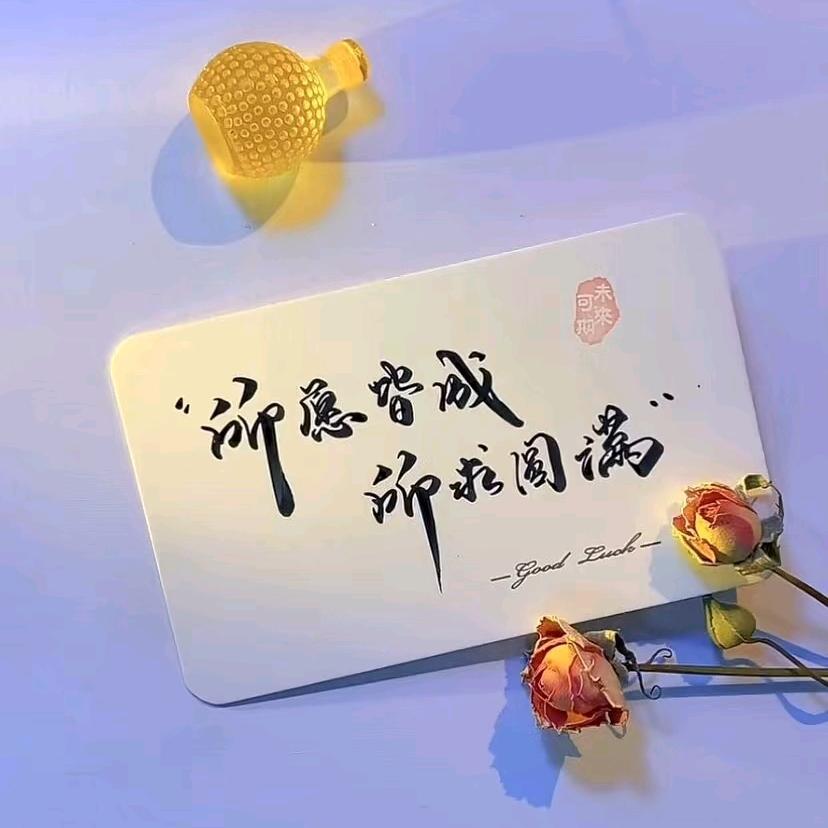 未來
可期
“所愿皆成
所求圆满”
—Good Luck—